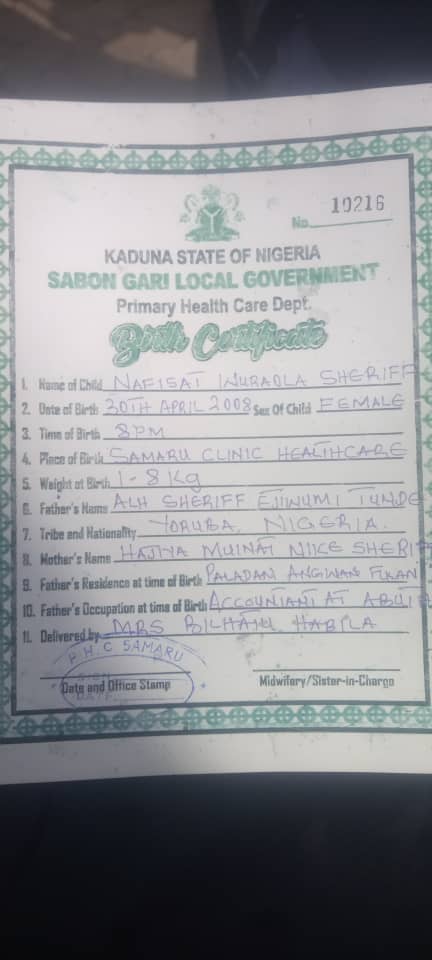 No. 10216
KADUNA STATE OF NIGERIA
SABON GARI LOCAL GOVERNMENT
Primary Health Care Dept.
Birth Certificate
1. Name of Child NAFISAT WURAOLA SHERIFF
2. Date of Birth 30TH APRIL 2008 Sex Of Child FEMALE
3. Time of Birth 8PM
4. Place of Birth SAMARU CLINIC HEALTHCARE
5. Weight at Birth 1-8 Kg
6. Father's Name ALH SHERIFF EJIWUMI TUNDE
7. Tribe and Nationality YORUBA, NIGERIA.
8. Mother's Name HAJIYA MUINAT SHERIF
9. Father's Residence at time of Birth PALADAN ANGWAN FULANI
10. Father's Occupation at time of Birth ACCOUNTANT AT
11. Delivered by MRS HABILA
P.H.C SAMARU
SIGN
DATE
Date and Office Stamp
Midwifery/Sister-in-Charge